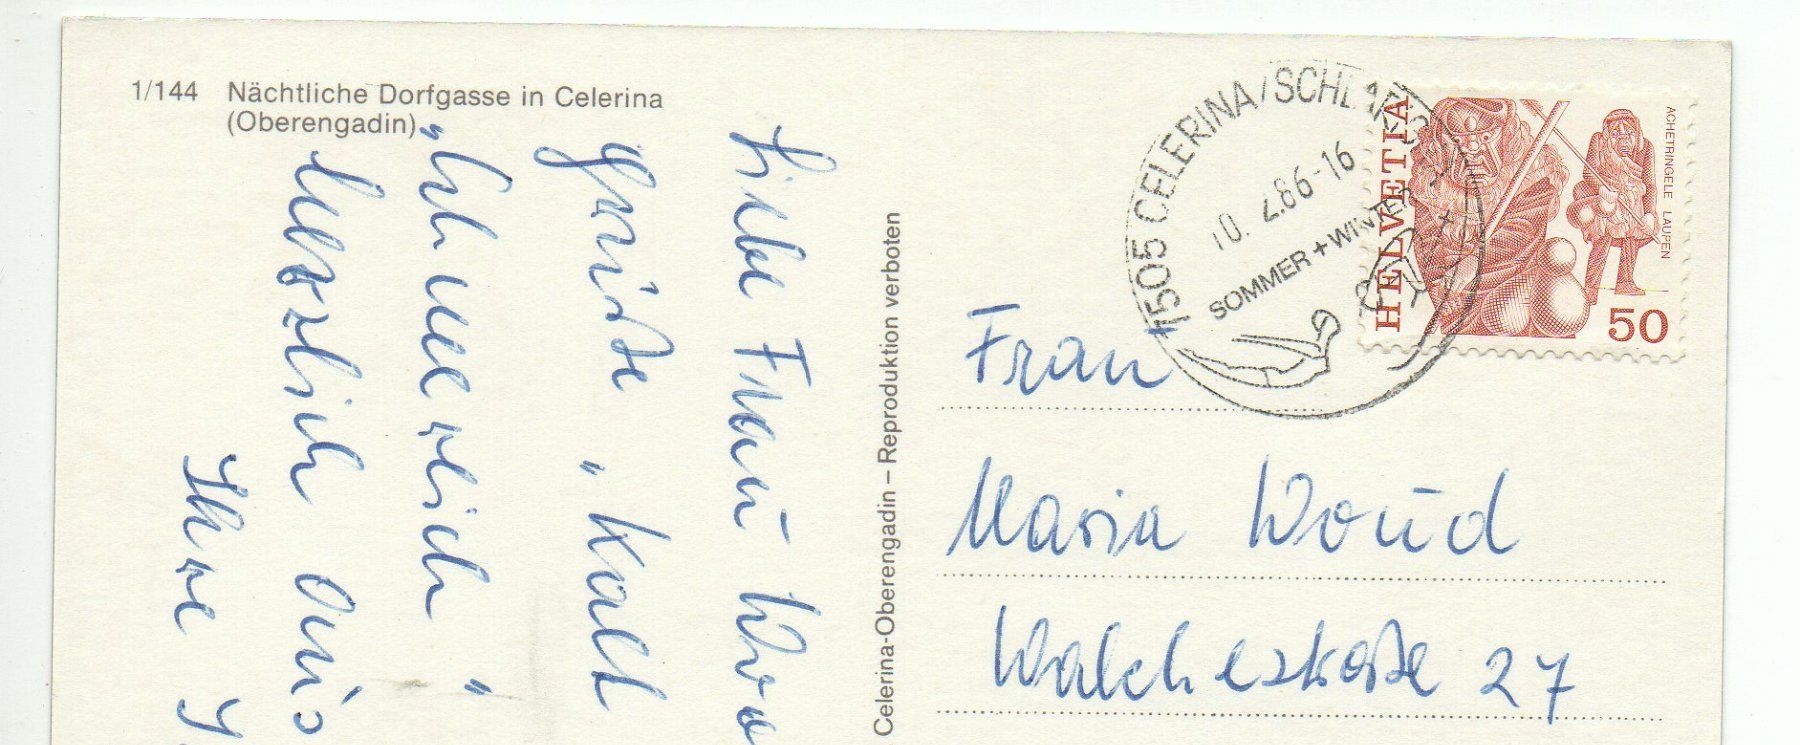 1/144 Nächtliche Dorfgasse in Celerina
(Oberengadin)
Liebe Frau
Grüsse "Kalt
herzlich aus
Ihre
Celerina-Oberengadin – Reproduktion verboten
7505 CELERINA/SCHLARIGNA
10. 2.86-16
SOMMER + WINTER
HELVETIA
ACHETRINGELE LAUPEN
50
Frau
Maria Woud
Walchestraße 27